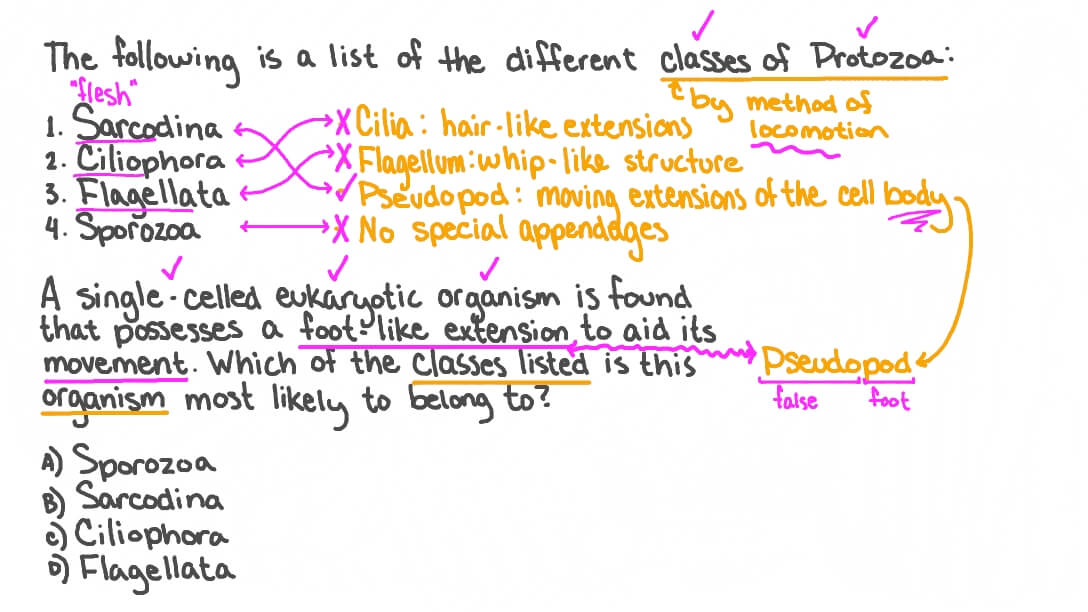 The following is a list of the different classes of Protozoa:
"flesh"
by method of
locomotion
1. Sarcodina
Cilia: hair-like extensions
2. Ciliophora
Flagellum: whip-like structure
3. Flagellata
Pseudopod: moving extensions of the cell body
4. Sporozoa
No special appendages
A single-celled eukaryotic organism is found
that possesses a foot-like extension to aid its
movement. Which of the classes listed is this
organism most likely to belong to?
Pseudopod
false foot
A) Sporozoa
B) Sarcodina
C) Ciliophora
D) Flagellata